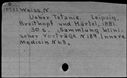 Weiss, N.
Ueber Tetanie. Leipzig,
Breitkopf und Härtel, 1881.
30 s. (Sammlung klini-
scher Vorträge N 189 Innere
Medicin N 63.)